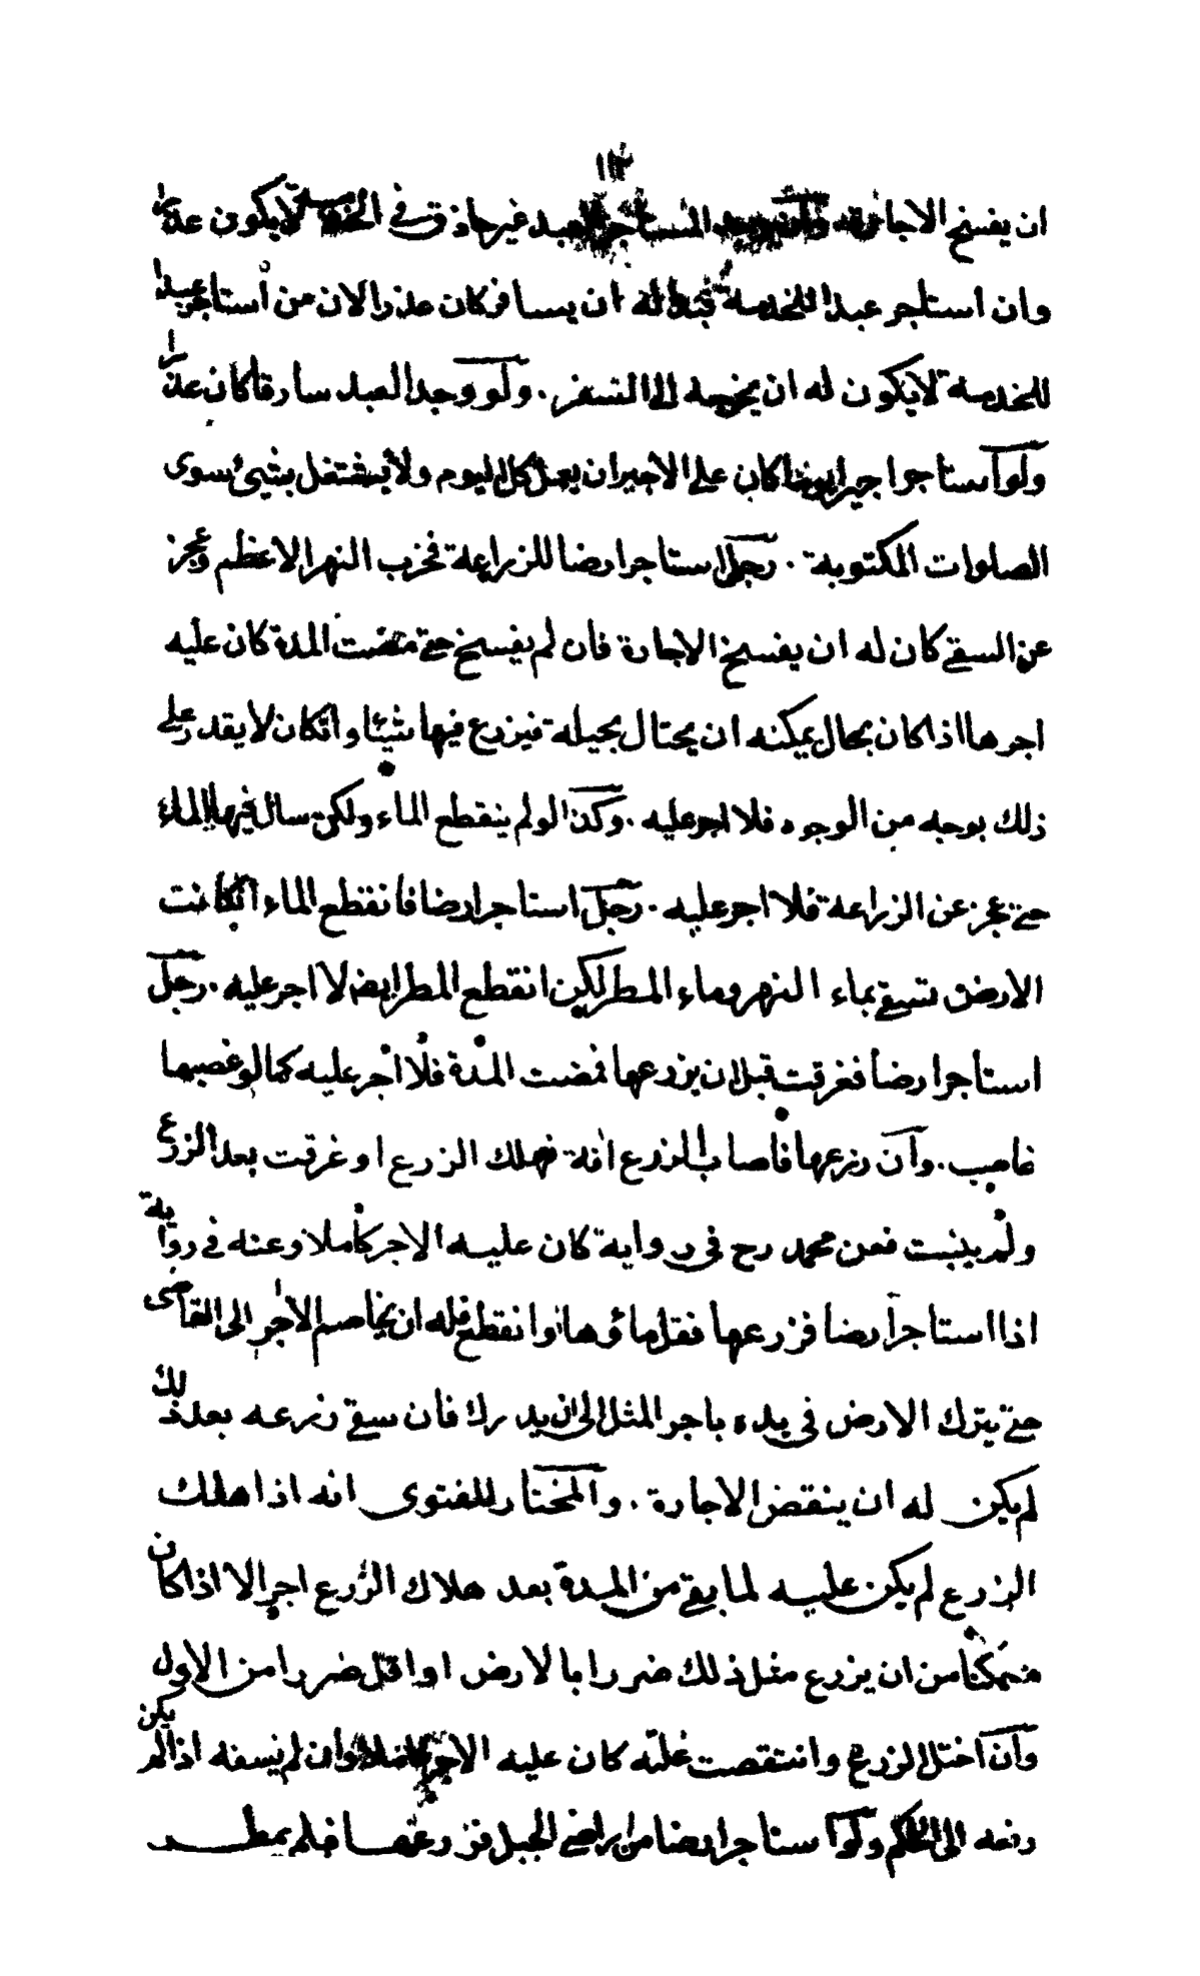 ١١٣
ان يفسخ الاجارة وان وجد المستاجر العبد غير حاذق في الخدمة لا يكون عذرا
وان استاجر عبدا للخدمة ثم بدا له ان يسافر كان عذرا لان من استاجر عبدا
للخدمة لا يكون له ان يخرجه الى السفر . ولو وجد العبد سارقا كان عذرا
ولو استاجر اجيرا يوما كان على الاجير ان يعمل كل اليوم ولا يشتغل بشيئ سوى
الصلوات المكتوبة . رجل استاجر ارضا للزراعة فخرب النهر الاعظم وعجز
عن السقي كان له ان يفسخ الاجارة فان لم يفسخ حتى مضت المدة كان عليه
اجرها اذا كان بحال يمكنه ان يحتال بحيلة فيزرع فيها شيئا وانكان لا يقدر على
ذلك بوجه من الوجوه فلا اجر عليه . وكذا لو لم ينقطع الماء ولكن سال فيها الماء
حتى عجز عن الزراعة فلا اجر عليه . رجل استاجر ارضا فانقطع الماء انكانت
الارض تسقى بماء النهر وماء المطر لكن انقطع المطر ايضا لا اجر عليه . رجل
استاجر ارضا فغرقت قبل ان يزرعها فمضت المدة فلا اجر عليه كما لو غصبها
غاصب . وان زرعها فاصاب الزرع افة فهلك الزرع او غرقت بعد الزرع
ولم ينبت فعن محمد رح في رواية كان عليه الاجر كاملا وعنه في رواية
اذا استاجر ارضا فزرعها فقل ماؤها او انقطع فله ان يخاصم الاجر الى القاضى
حتى يترك الارض في يده باجر المثل الى ان يدرك فان سقى زرعه بعد ذلك
لم يكن له ان ينقض الاجارة . والمختار للفتوى انه اذا هلك
الزرع لم يكن عليه لما بقي من المدة بعد هلاك الزرع اجر الا اذا كان
متمكنا من ان يزرع مثل ذلك ضررا بالارض او اقل ضررا من الاول
وان اختل الزرع وانتقصت غلته كان عليه الاجر كاملا وان لم يسقه اذا لم يكن
رفعه الى الحاكم ولو استاجر ارضا من اراضي الجبل فزرعها فلم يمطر